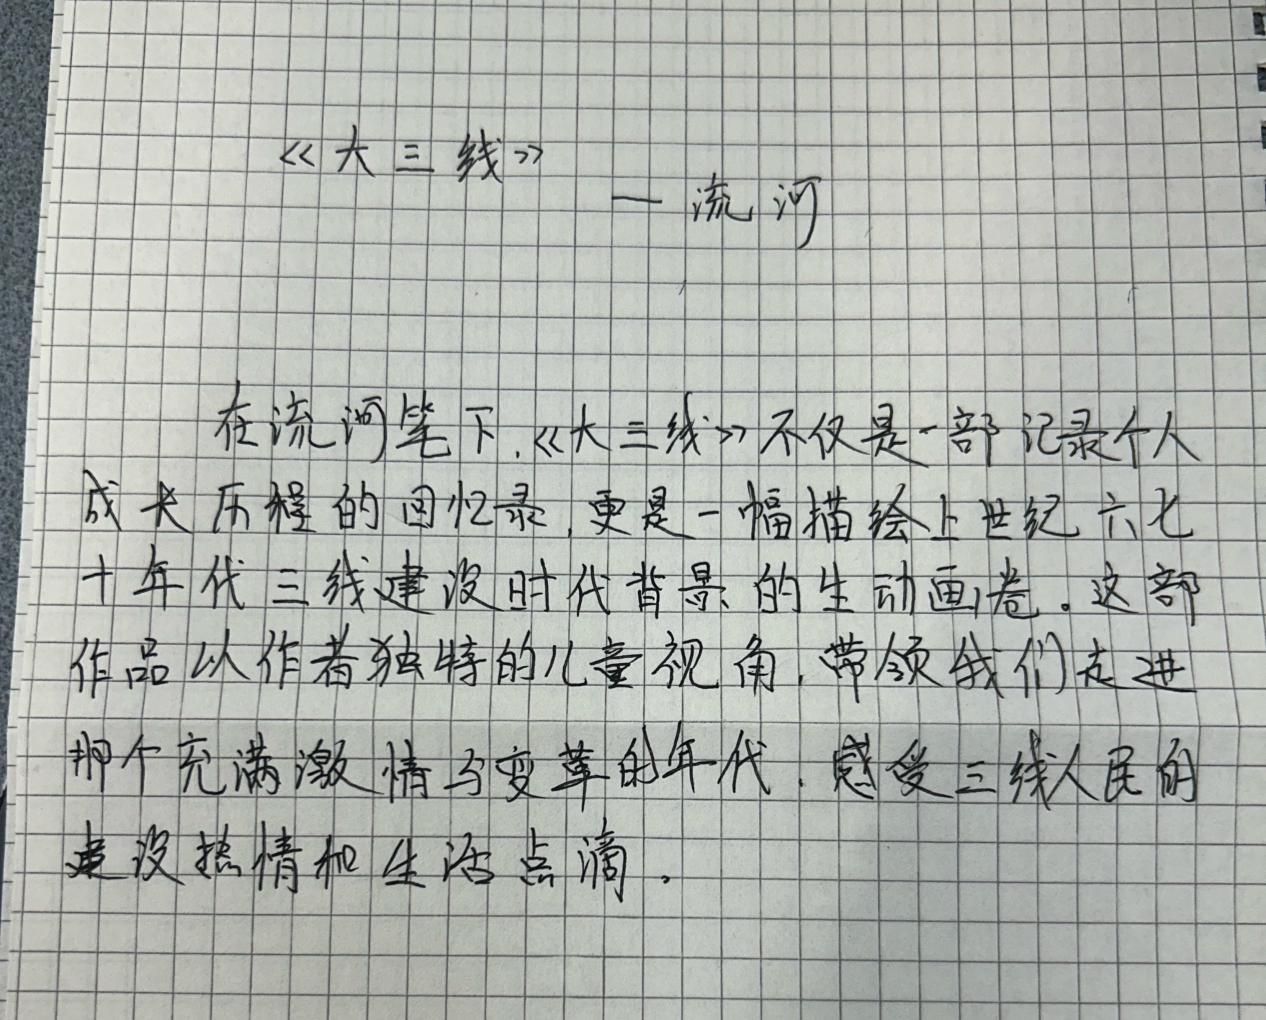 《大三线》
—流河
在流河笔下,《大三线》不仅是一部记录个人
成长历程的回忆录,更是一幅描绘上世纪六七
十年代三线建设时代背景的生动画卷。这部
作品以作者独特的儿童视角,带领我们走进
那个充满激情与变革的年代,感受三线人民的
建设热情和生活点滴。